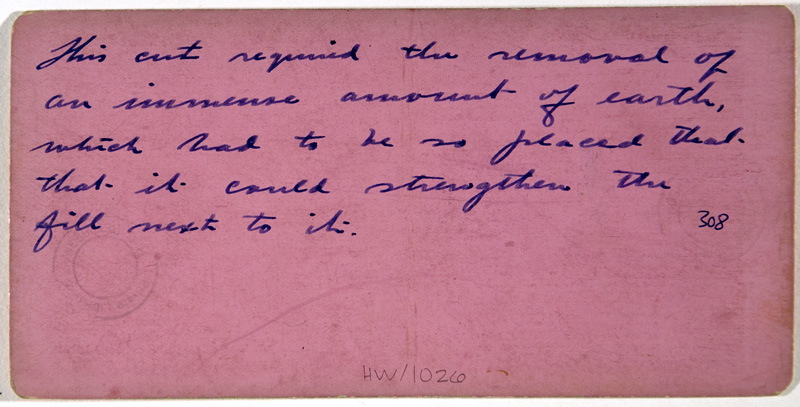 This cut required the removal of
an immense amount of earth,
which had to be so placed that
that it could strengthen the
fill next to it.
308
HW/1026